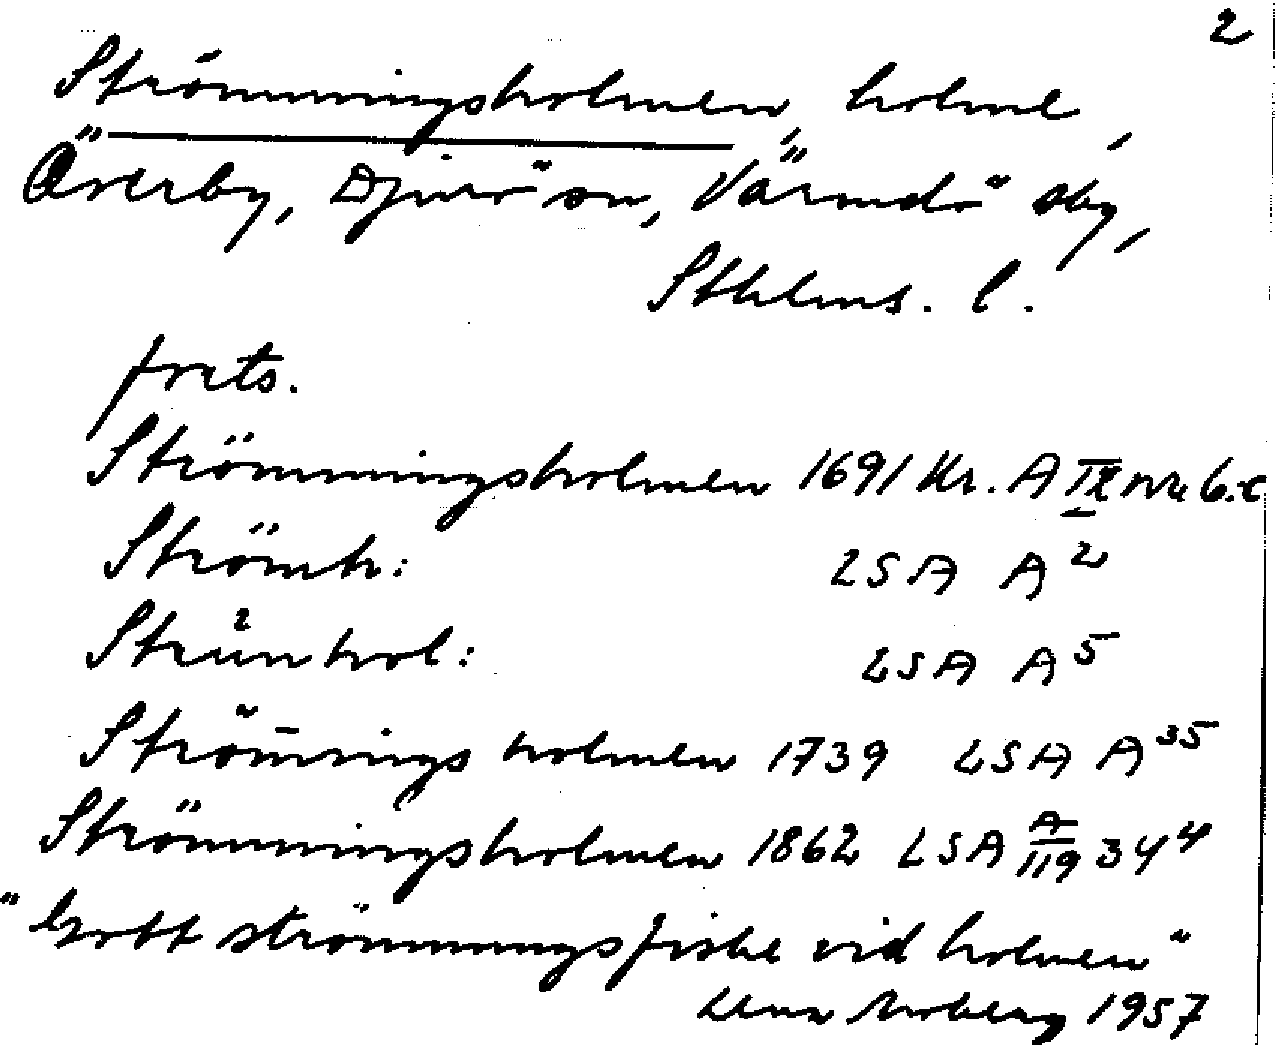 2
Strömmingsholmen, holme,
Överby, Djurö sn, Värmdö sbg,
Sthlms. l.
frets.
Strömmingsholmen 1691 Kr. A IX nr 6:c
Strömh: LSA A2
Strünhol: LSA A5
Ström̄ings holmen 1739 LSA A35
Strömmingsholmen 1862 LSA A/119 344
"Gott strömmingsfiske vid holmen"
Lena Moberg 1957